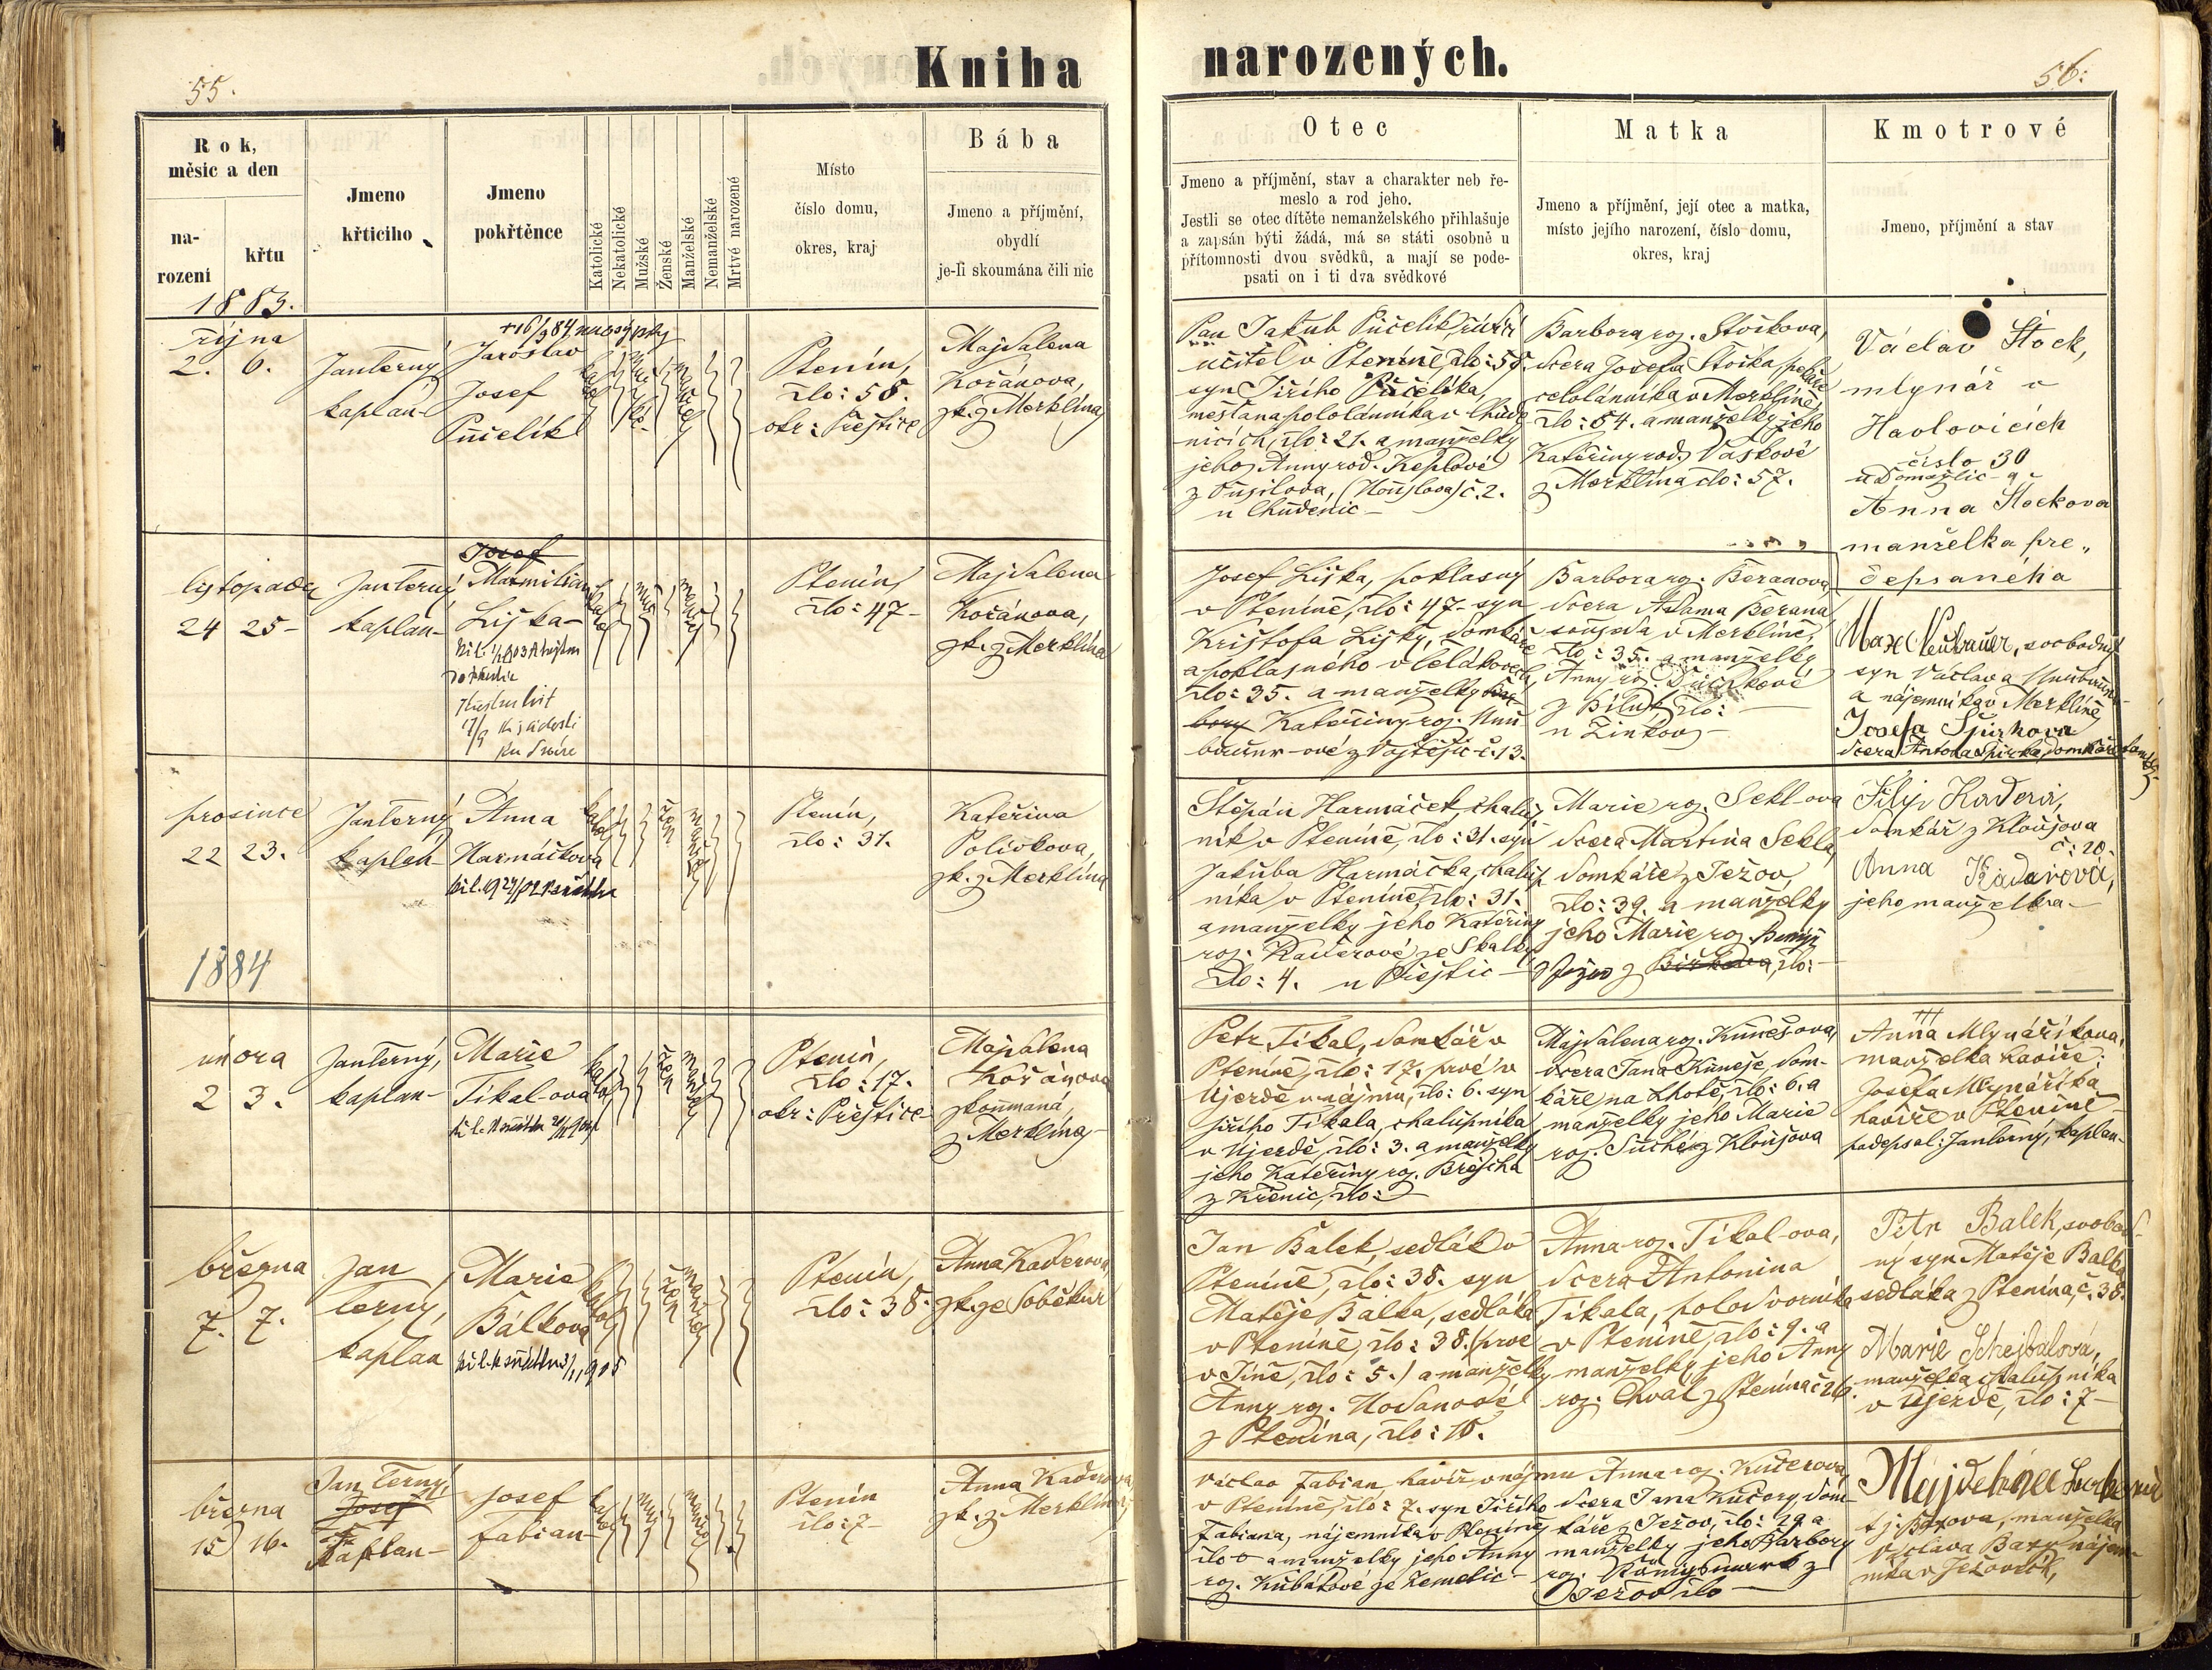 55.
Kniha
narozených.
56.
Rok,
měsic a den
na-
rození
křtu
Jmeno
křticiho
Jmeno
pokřtěnce
Katolické
Nekatolické
Mužské
Ženské
Manželské
Nemanželské
Mrtvé narozené
Místo
číslo domu,
okres, kraj
Bába
Jmeno a příjmění,
obydlí
je-li skoumána čili nic
Otec
Jmeno a příjmění, stav a charakter neb ře-
meslo a rod jeho.
Jestli se otec dítěte nemanželského přihlašuje
a zapsán býti žádá, má se státi osobně u
přítomnosti dvou svědků, a mají se pode-
psati on i ti dva svědkové
Matka
Jmeno a příjmění, její otec a matka,
místo jejího narození, číslo domu,
okres, kraj
Kmotrové
Jmeno, příjmění a stav
1883.
října
2. 6.
Jan Černý
kaplan
Jaroslav
Josef
Půčelík
Ptenín,
člo: 58.
okr: Přeštice
Majdalena
Kořánova,
zk. z Merklína
Pan Jakub Půčelík, řídící
učitel v Pteníně, člo: 58.
syn Jiřího Půčelíka,
mešťana pololánníka v Chude-
nicích, člo: 21. a manželky
jeho Anny rod. Keplové
z Pušilova, č. 2.
u Chudenic
Barbora roz. Štočkova,
dcera Josefa Štočka, pekaře
celolánníka v Merklíně,
člo: 54. a manželky jeho
Kateřiny rod. Vaskové
z Merklína, člo: 57.
Václav Štock,
mlynář v
Havlovicích
číslo 30
u Domažlic a
Anna Štockova
manželka pře„
depsaného
listopadu
24 25
Jan Černý
kaplan
Josef
Maxmilian
Liška
Ptenín,
člo: 47
Majdalena
Kořánova,
zk. z Merklína
Josef Liška, poklasný
v Pteníně, člo: 47. syn
Krištofa Lišky, domkáře
a poklasného v Čelákovech
člo: 35. a manželky Bar-
bory Kateřiny roz. Neu-
bauer-ové z Vojtěšic č. 13.
Barbora roz. Beranova,
dcera Adama Berana
souseda v Merklíně,
člo: 35. a manželky
Anny roz.
z člo:
u Žinkov
Max Neubauer, svobodný
syn Václava Neubauera
a nájemníka v Merklíně,
Josefa Špirkova
dcera Antona Špirka, domkáře
prosince
22 23.
Jan Černý
kaplan
Anna
Harmáčkova
Ptenín,
člo: 31.
Kateřina
Polívkova,
zk. z Merklína
Štěpán Harmáček, chalup-
ník v Pteníně, člo: 31. syn
Jakuba Harmáčka, chalup-
níka v Pteníně, člo: 31.
a manželky jeho Kateřiny
roz. Kaderové ze Skalky
člo: 4. u Přeštic
Marie roz. Sekl-ova
dcera Martina Sekla,
domkáře z Ježov
člo: 39. a manželky
jeho Marie roz.
z Ježov z člo:
Filip Kadera,
domkář z Kloušova
č: 20.
Anna Kaderová,
jeho manželka
1884
února
2 3.
Jan Černý,
kaplan
Marie
Tikal-ova
Ptenín,
člo: 17.
okr: Přeštice
Majdalena
Kořánova
zkoumaná,
z Merklína
Petr Tikal, domkář v
Pteníně, člo: 17. prvé v
Újezdě v nájmu, člo: 6. syn
Jiřího Tikala, chalupníka
v Újezdě, člo: 3. a manželky
jeho Kateřiny roz. Brejcha
z Křenic, člo:
Majdalena roz. Kunešova,
dcera Jana Kuneše, dom-
káře na Lhotě, člo: 6. a
manželky jeho Marie
roz. Suché z Kloušova
+++
Anna Mlynáříkova,
manželka havíře
Josefa Mlynáříka
havíře v Pteníně
podepsal: Jan Černý, kaplan
března
7. 7.
Jan
Černý,
kaplan
Marie
Bálkova
Ptenín,
člo: 38.
Anna Kaderova,
zk. ze Soběkur
Jan Bálek, sedlák v
Pteníně, člo: 38. syn
Matěje Bálka, sedláka
v Pteníně, člo: 38. (prvé
v Tíně, člo: 5.) a manželky
Anny roz. Hodanové
z Ptenína, člo: 16.
Anna roz. Tikal-ova,
dcera Antonina
Tikala, polodvorníka
v Pteníně, člo: 9. a
manželky jeho Anny
roz. Chval z Ptenína č 26.
Petr Balek, svobod-
ný syn Matěje Balka
sedláka z Ptenína, č. 38.
Marie Schejbalová,
manželka chalupníka
v Újezdě, člo: 7
března
15 16.
Jan Černý,
Josef
Kaplan
Josef
Fabian
Ptenín
člo: 7
Anna Kaderova,
zk. z Merklína
Václav Fabian, havíř v nájmu
v Pteníně, člo: 7. syn Jiřího
Fabiana, nájemníka v Pteníně
člo 0 a manželky jeho Anny
roz. Kubátové ze Zemětic
Anna roz. Kučerova,
dcera Jana Kučery, dom-
káře z Ježov, člo: 29 a
manželky jeho Barbory
roz. z
Ježov člo
manželka
Václava nájem-
níka v Ježovech,